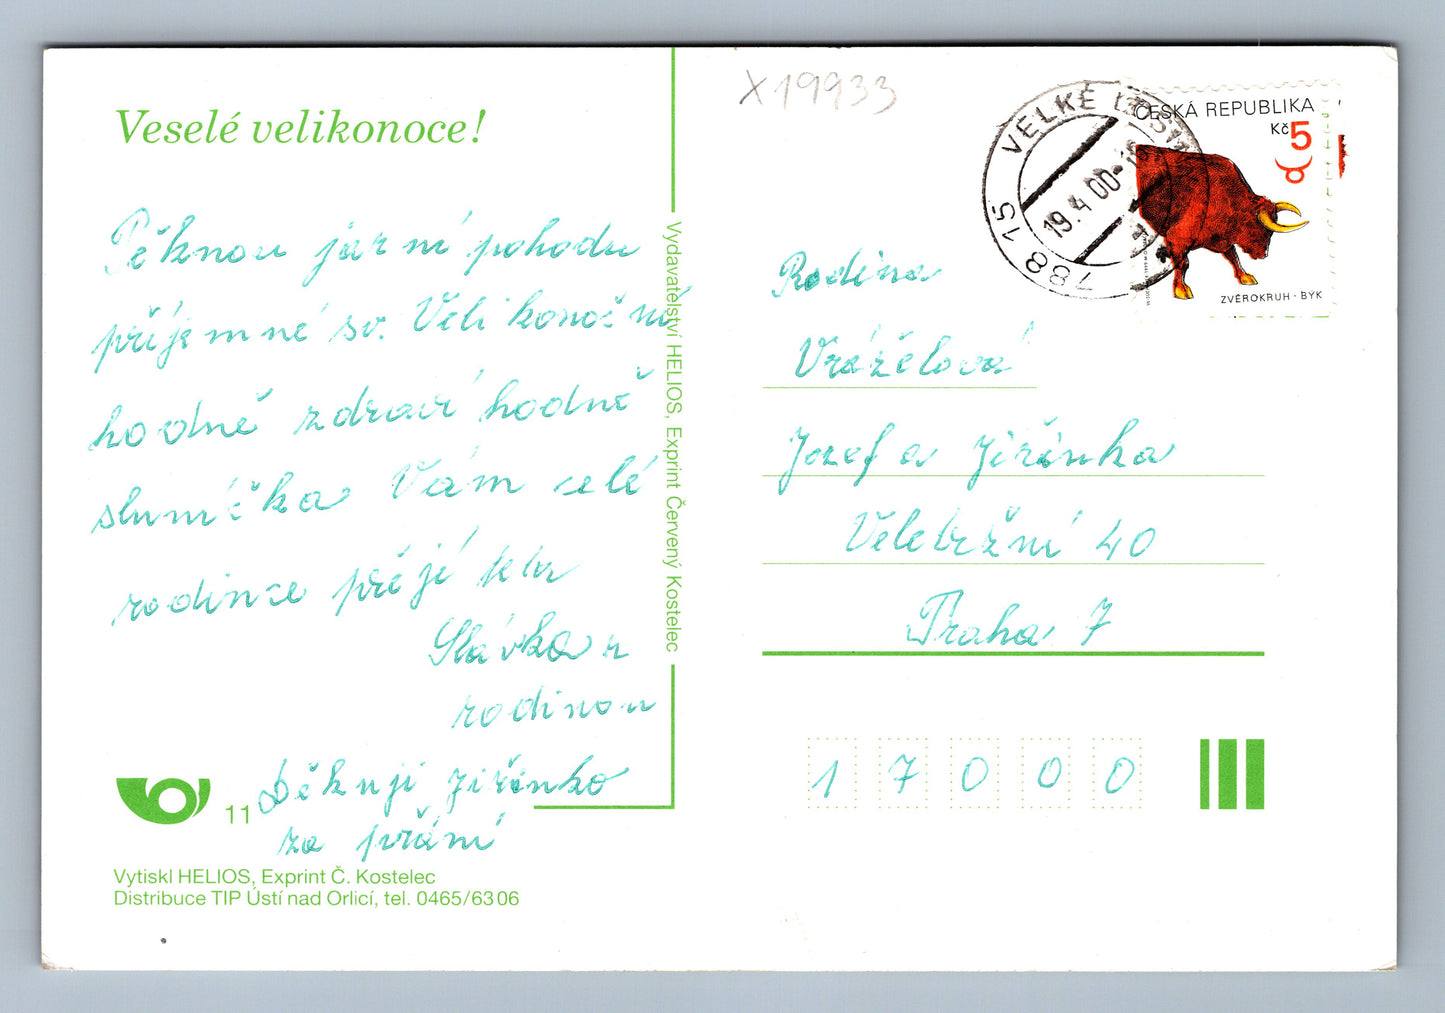 X19933
Veselé velikonoce!
Pěknou jarní pohodu
příjemné sv. Velikonoční
hodně zdraví hodně
sluníčka Vám celé
rodince přejí
Slávka z
rodinou
Děkuji Jiřinko
za přání
11
Vytiskl HELIOS, Exprint Č. Kostelec
Distribuce TIP Ústí nad Orlicí, tel. 0465/6306
Vydavatelství HELIOS, Exprint Červený Kostelec
788 15 VELKÉ
19.4.00
ČESKÁ REPUBLIKA
Kč 5
ZVĚROKRUH · BÝK
Rodina
Vrážělová
Jozef a Jiřinka
Veletržní 40
Praha 7
17000